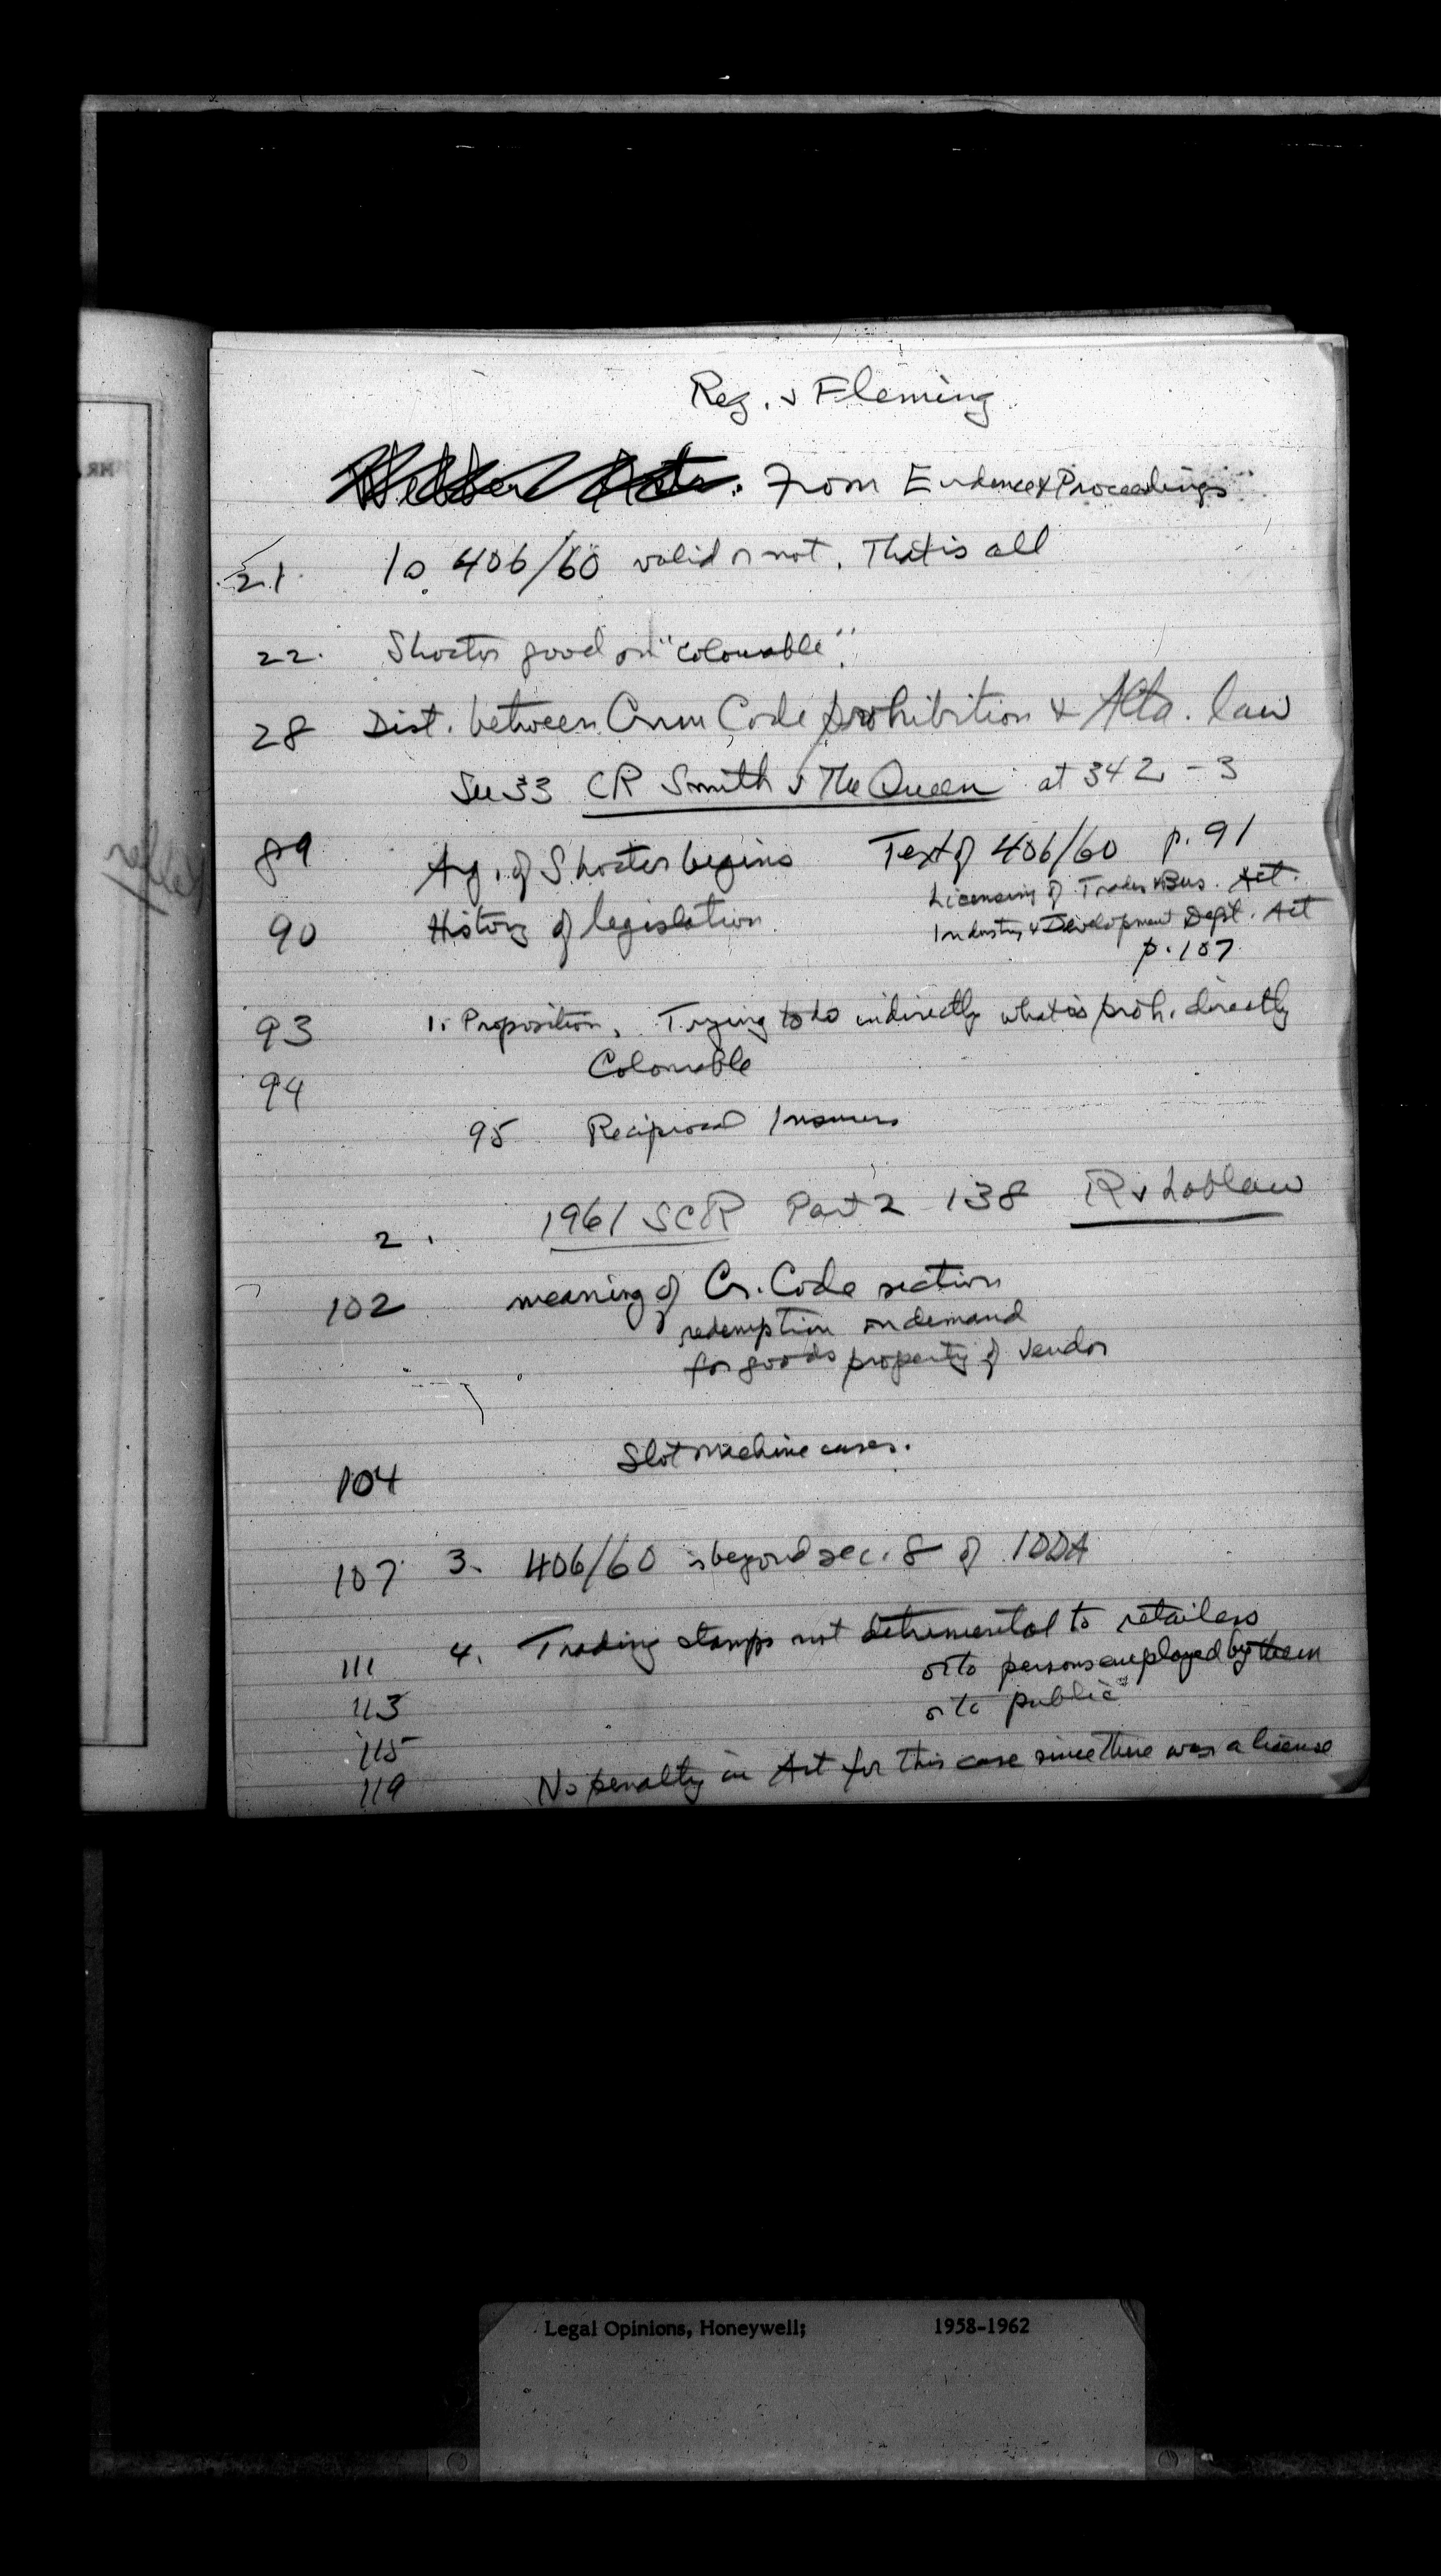 Reg. v Fleming
From Evidence & Proceedings
21. Is 406/60 valid or not. That is all
22. Shorter good on "colourable".
28 Dist. between Crim Code prohibition & Alta. law
See 33 CR Smith v The Queen at 342-3
89 Arg. of Shorter begins Text of 406/60 p. 91
Licensing of Trades & Bus. Act.
90 History of legislation Industry & Development Dept. Act
p. 107
93 1. Proposition. Trying to do indirectly what is proh. directly
94 Colourable
95 Reciprocal Insurers
2. 1961 SCR Part 2 138 R v Loblaw
102 meaning of Cr. Code section
redemption on demand
for goods property of vendor
104 Slot machine cases.
107 3. 406/60 is beyond sec. 8 of IDDA
111 4. Trading stamps not detrimental to retailers
or to persons employed by them
113 or to public
115
119 No penalty in Act for this case since there was a license
Legal Opinions, Honeywell; 1958-1962